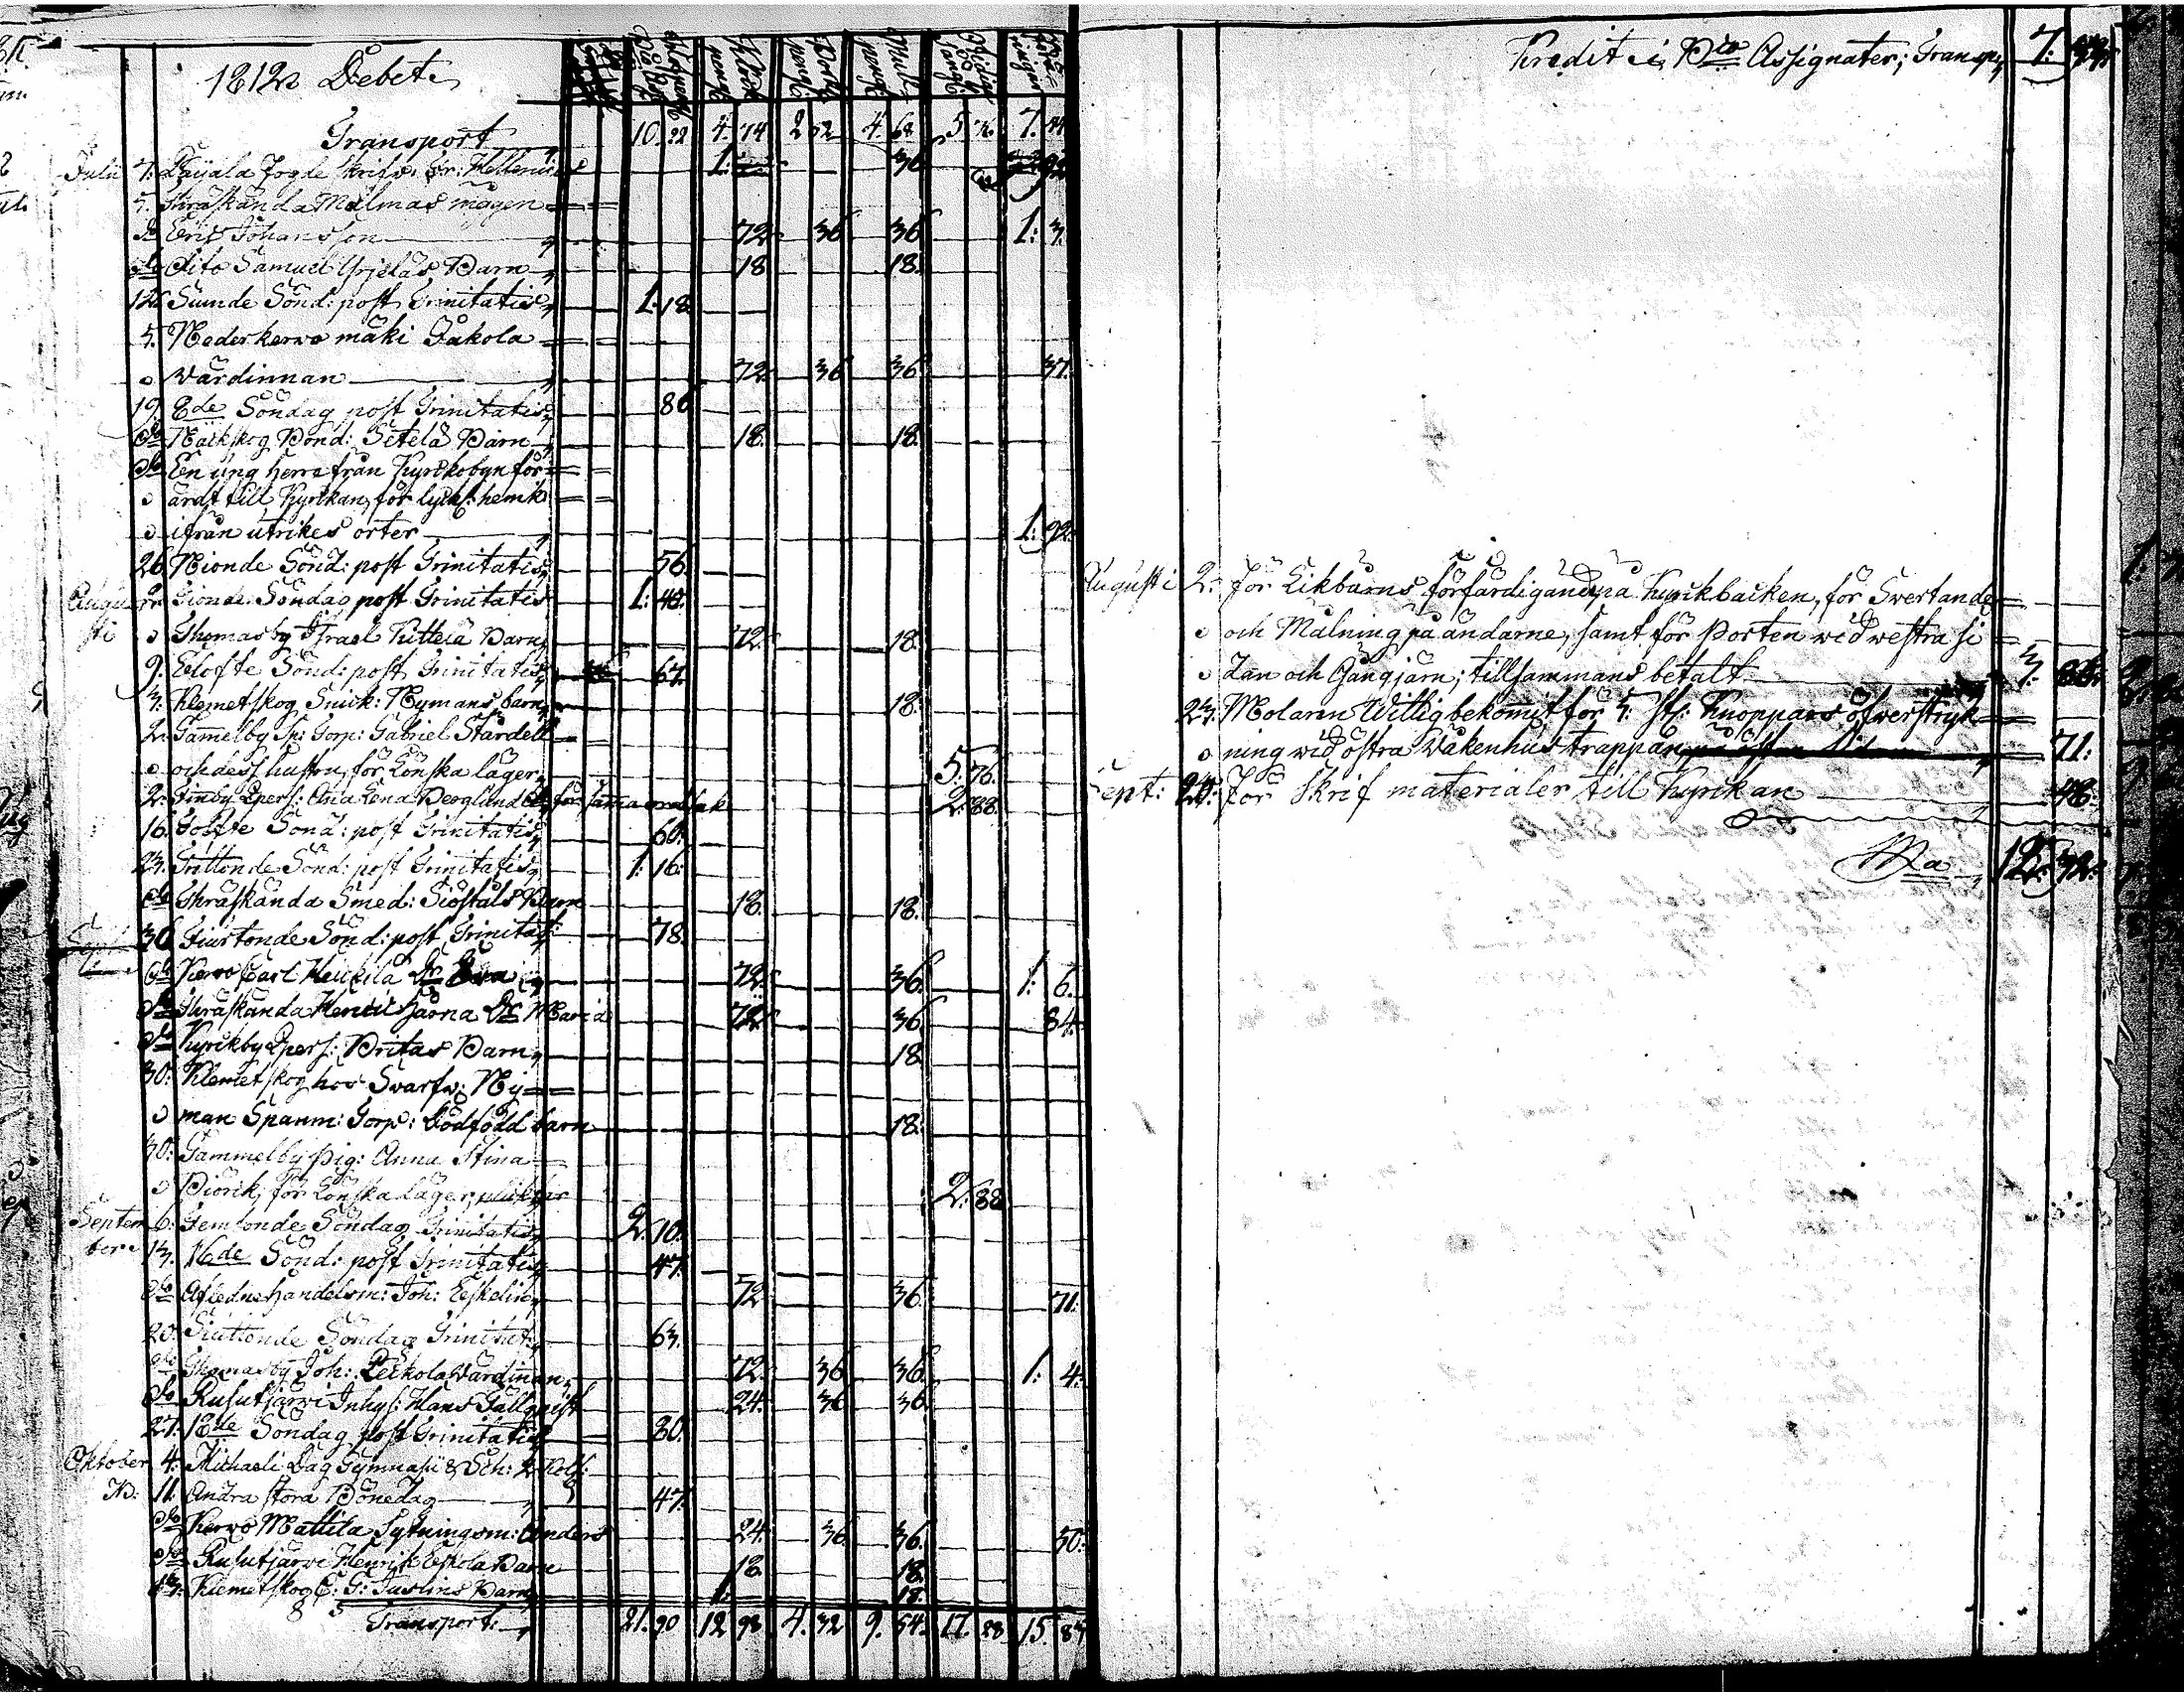 1812 Debet
Transport 10. 22 4. 74 2 52 4. 68 5. 76 7.
Julii 7: Fogde 1. 36
5. Thräskända Malmas mågen
do Eric Johansson 72 36 36 1: 3.
do dito Samuel Yrjeläs Barn 18 18
12. Siunde Sönd: post Trinitatis 1. 18
5. Nederkervo mäki Jakola
o värdinnan 72 36 36 37.
19. 8de Söndag post Trinitatis 86
do Näckskog Bond: Setelä Barn 18. 18.
do En ung herre från Kyrkobyn för
o ardt till Kyrkan, för lyckl: hemk
o ifrån utrikes orter 1. 92
26 Nionde Sönd: post Trinitatis 56
Augusti 2. Tionde Söndag post Trinitatis 1. 40.
o Thomasby Israel Kuttela Barn 72. 18.
9: Elofte Sönd: post Trinitatis 67.
3: Klemetskog Snick: Nymans barn 18.
2. Gammelby Sp: Torp: Gabriel Stårdell
o och dess hustru, för Lönska läger 5. 76.
2. Ana Lena Berglund för samma orsak 2. 88.
16. Tolfte Sönd: post Trinitatis 60.
23. Trettonde Sönd: post Trinitatis 1. 16.
do Thräskända Smed: Siöstals Barn 18. 18.
30 Fiurtonde Sönd: post Trinitat: 78.
do Kervo Carl Heickilä 72. 36. 1. 6.
do Thräskända Henric Jårna Dr Maria 72 36 84.
do Kyrkby Qpers: Britas Barn 18
30: Klemetskog hos Svarfv: Ny=
o man Spanm: Torp: dödfödd barn 18.
30: Gammelby Pig: Anna Stina
o Biörk, för Lönska läger, 2. 88
September 6: Femtonde Söndag Trinitatis 2. 10.
13. 16de Sönd: post Trinitatis 47.
do Afledne Handelsm: Joh: Eskelin 72 36. 71.
20. Siuttonde Söndag Trinitat: 63.
do Thomasby Joh: Peckola Värdinnan 72. 36 36. 1. 4.
do Rusutjärvi Inhys: Hans Tallqvist 24. 36 36.
27. 18de Söndag post Trinitatis 80.
Oktober 4. Michaeli Dag Gymnasii & Sch:
No: 11. Andra stora Bönedag 47.
do Kervo Mattila Sytningsm: Anders 24. 36 36. 50.
do Rusutjärvi Henrik Eskola Barn 18. 18.
13. Klemetskog E: G: Juslins Barn 1. 18.
Transport: 21. 90 12 98 4. 32 9. 54. 17. 28 15. 87
Kredit i Bco Assignater; Transp: 7:
Augusti 2: För Likbårns förfärdigande på Kyrkbacken, för Svertande
o och Målning på ändarne, samt för Porten wid westra si
o dan och Gångjärn; tillsammans betalt 3.
23. Molaren Willig bekommit för 5: st: Knoppars öfverstryk
o ning wid östra Wakenhus trappan 71.
Sept: 20: För Skrif materialer till Kyrkan 48.
Sma 12. 92.